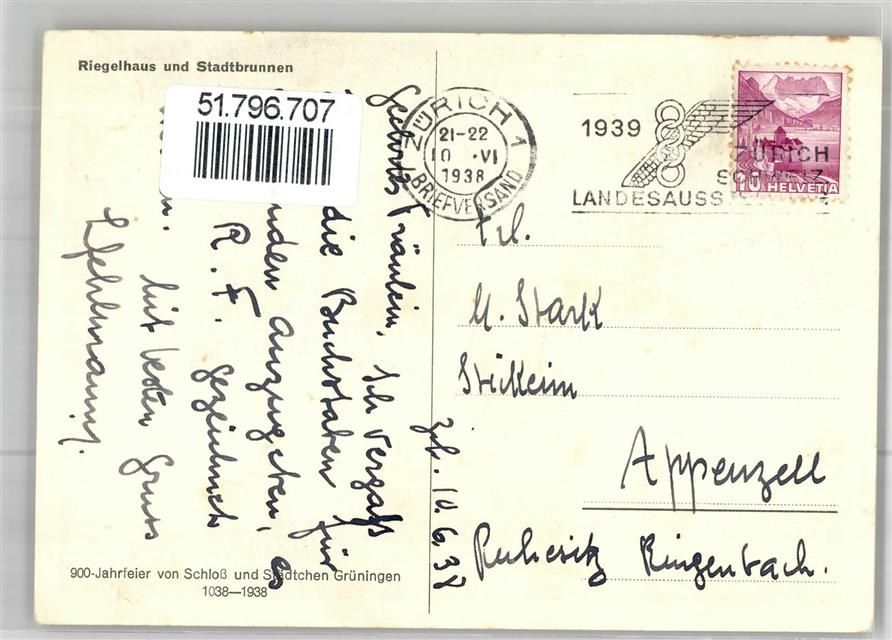 Riegelhaus und Stadtbrunnen
51.796.707
ZÜRICH 1
21-22
10.VI
1938
BRIEFVERSAND
1939
ZÜRICH
SCHWEIZ.
LANDESAUSS
10 HELVETIA
Geehrtes Fräulein, Ich vergass
die Buchstaben für
anzugeben, es
R. F. gezeichnet
Mit besten Gruss
Zch. 10.6.38
Frl.
M. Stark
Stickerin
Appenzell
Ruhesitz Ringenbach.
900-Jahrfeier von Schloß und Städtchen Grüningen
1038—1938